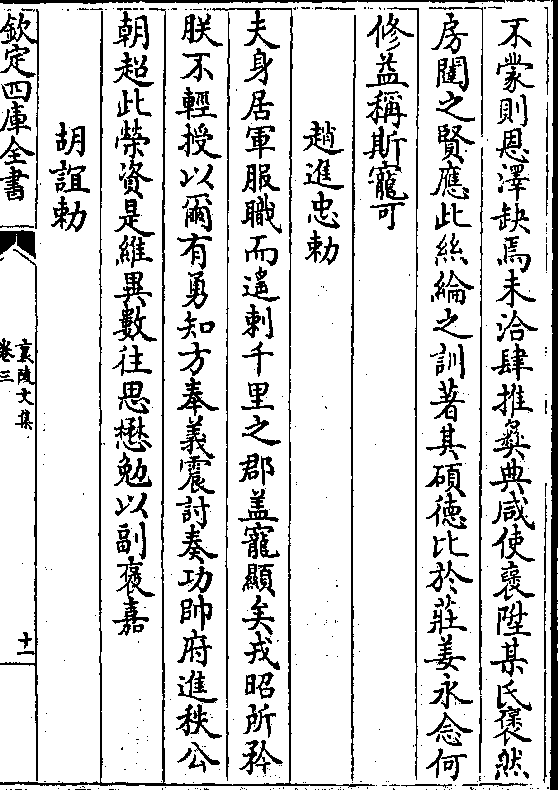 不蒙則恩澤缺焉未洽肆推彜典咸使襃陞某氏褎然
房闈之賢應此絲綸之訓著其碩德比於莊姜永念何
修益稱斯寵可
趙進忠勅
夫身居軍服職而遙刺千里之郡蓋寵顯矣戎昭所矜
朕不輕授以爾有勇知方奉義震討奏功帥府進秩公
朝超此榮資是維異數往思懋勉以副襃嘉
胡誼勅
欽定四庫全書
襄陵文集
卷三
十一